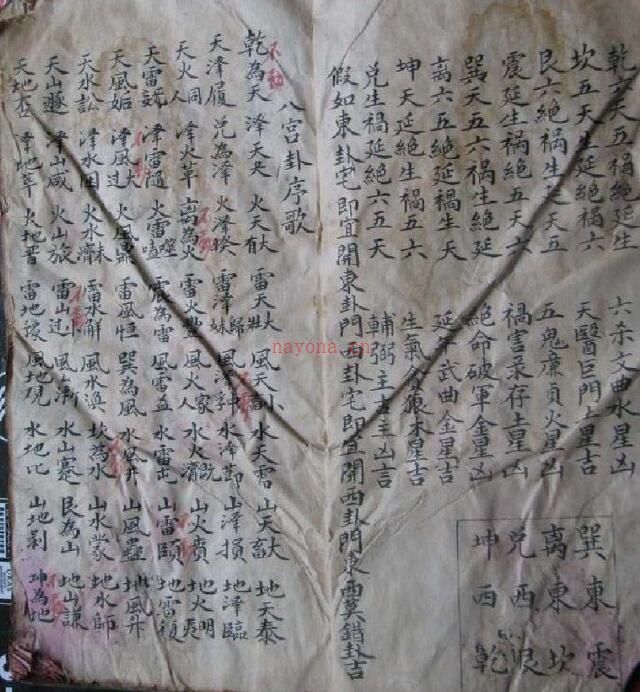 乾六天五禍絶延生
坎五天生延絶禍六
艮六絶禍生延天五
震延生禍絶五天六
巽天五六禍生絶延
离六五絶延禍生天
坤天延絶生禍五六
兑生禍延絶六五天
六杀文曲水星凶
天醫巨門土星吉
五鬼廉貞火星凶
禍害录存土星凶
絶命破軍金星凶
延年武曲金星吉
生氣貪狼木星吉
輔弼主吉主凶吉
假如東卦宅即宜開東卦門西卦宅即宜開西卦門東西莫錯卦吉
八宫卦序歌
乾為天 泽天夬 火天大有 雷天大壯 風天小畜 水天需 山天大畜 地天泰
天泽履 兑為泽 火泽睽 雷泽歸妹 風泽孚 水泽節 山泽損 地泽臨
天火同人 泽火革 离為火 雷火豊 風火家人 水火既濟 山火賁 地火明夷
天雷 泽雷隨 火雷噬嗑 震為雷 風雷益 水雷屯 山雷頤 地雷復
天風姤 泽風大过 火風鼎 雷風恒 巽為風 水風井 山風蠱 地風升
天水訟 泽水困 火水未濟 雷水解 風水渙 坎為水 山水蒙 地水師
天山遯 泽山咸 火山旅 雷山过 風山漸 水山蹇 艮為山 地山謙
天地否 泽地萃 火地晋 雷地豫 風地观 水地比 山地剥 坤為地
巽東 震
离東 坎
兑西 艮
坤西 乾
nayona.cn